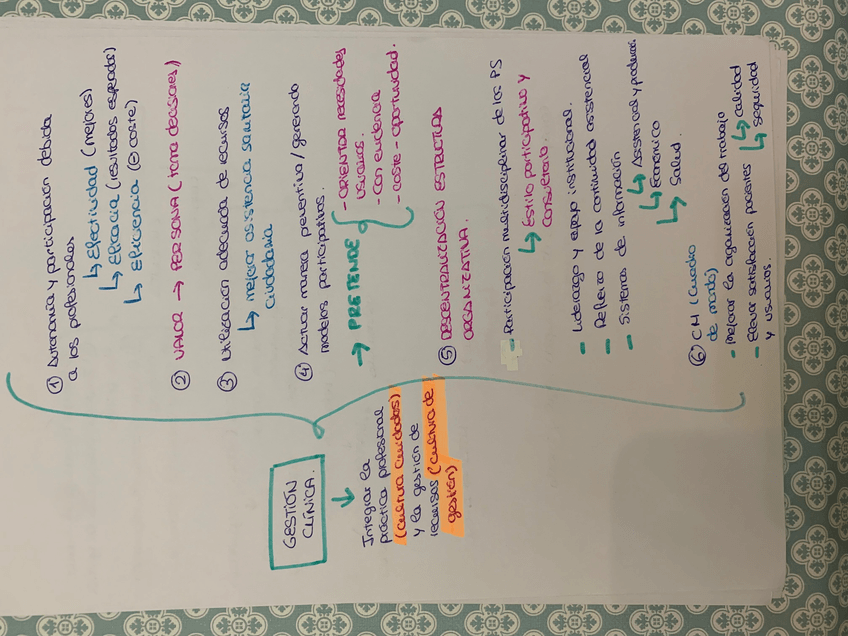 GESTIÓN
CLÍNICA.
Integrar la
práctica profesional
(cultura cuidados)
y la gestión de
recursos (cultura de
gestión)
① Autonomía y participación debida
a los profesionales
↳ Efectividad (mejores)
↳ Eficacia (resultados esperados)
↳ Eficiencia (⊖ coste)
② VALOR → PERSONA (toma decisiones)
③ Utilización adecuada de recursos
↳ mejorar asistencia sanitaria
ciudadanía
④ Actuar manera preventiva / generando
modelos participativos.
→ PRETENDE
- ORIENTAR necesidades
usuarios.
- Con evidencia
- coste - oportunidad.
⑤ DESCENTRALIZACIÓN ESTRUCTURA
ORGANIZATIVA.
- Participación multidisciplinar de los PS
↳ Estilo participativo y
consultorio.
- Liderazgo y apoyo institucional.
- Refuerzo de la continuidad asistencial
- Sistemas de información
↳ Asistencial y
↳ Económico
↳ Salud.
⑥ CM (Cuadro
de mando)
- Mejorar la organización del trabajo
- Elevar satisfacción pacientes
y usuarios.
↳ calidad
↳ seguridad